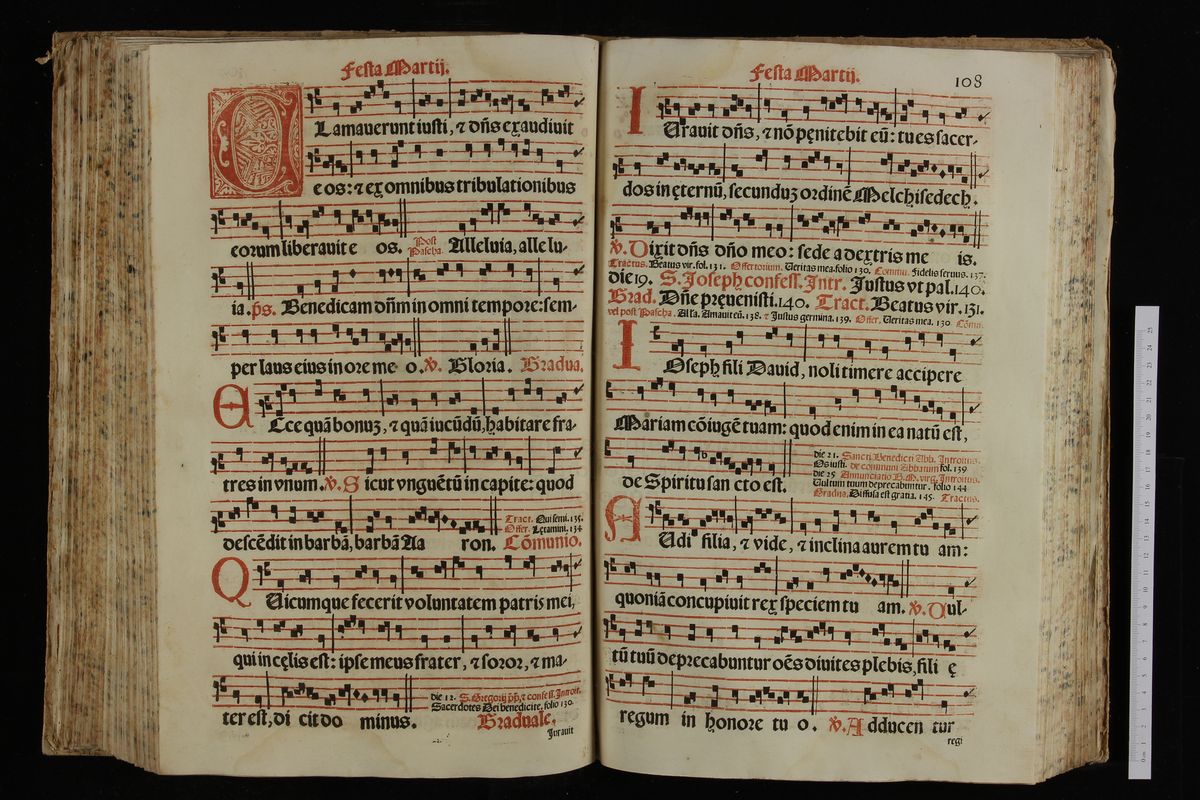 Festa Martij.
CLamauerunt iusti, ⁊ dñs exaudiuit
eos: ⁊ ex omnibus tribulationibus
eorum liberauit e os. Post Pascha. Alleluia, alle lu-
ia. ps. Benedicam dñm in omni tempore: sem-
per laus eius in ore me o. ℣. Gloria. Gradua.
ECce quã bonuz, ⁊ quã iucũdũ, habitare fra-
tres in vnum. ℣. Sicut vnguẽtũ in capite: quod
Tract. Qui semi. 135.
Offer. Lętamini. 134
descẽdit in barbã, barbã Aa ron. Cõmunio.
QUicumque fecerit voluntatem patris mei,
qui in cęlis est: ipse meus frater, ⁊ soror, ⁊ ma-
die 12. S. Gregorij pp̃. ⁊ confess. Introit.
Sacerdotes Dei benedicite. folio 130.
ter est, di cit do minus. Graduale.
Jurauit
Festa Martij.
108
IUrauit dñs, ⁊ nõ pęnitebit eũ: tu es sacer-
dos in ęternũ, secunduz ordinẽ Melchisedech.
℣. Dixit dñs dño meo: sede a dextris me is.
Tractus. Beatus vir. fol. 131. Offertorium. Veritas mea. folio 130. Commu. Fidelis seruus. 137.
die 19. S. Joseph confess. Intr. Justus vt pal. 140.
Grad. Dñe pręuenisti. 140. Tract. Beatus vir. 131.
vel post Pascha. Alla. Amauit eũ. 138. ⁊ Justus germina. 139. Offer. Veritas mea. 130 Cõmu.
IOseph fili Dauid, noli timere accipere
Mariam cõiugẽ tuam: quod enim in ea natũ est,
die 21. Sancti Benedicti Abb. Introitus.
Os iusti. de communi Abbatum fol. 139
die 25 Annunciatio B. M. virg. Introitus.
Vultum tuum deprecabuntur. folio 144
Gradua. Diffusa est gratia. 145. Tractus.
de Spiritu san cto est.
AUdi filia, ⁊ vide, ⁊ inclina aurem tu am:
quoniã concupiuit rex speciem tu am. ℣. Vul-
tũ tuũ deprecabuntur oẽs diuites plebis, fili ę
regum in honore tu o. ℣. Adducen tur
regi